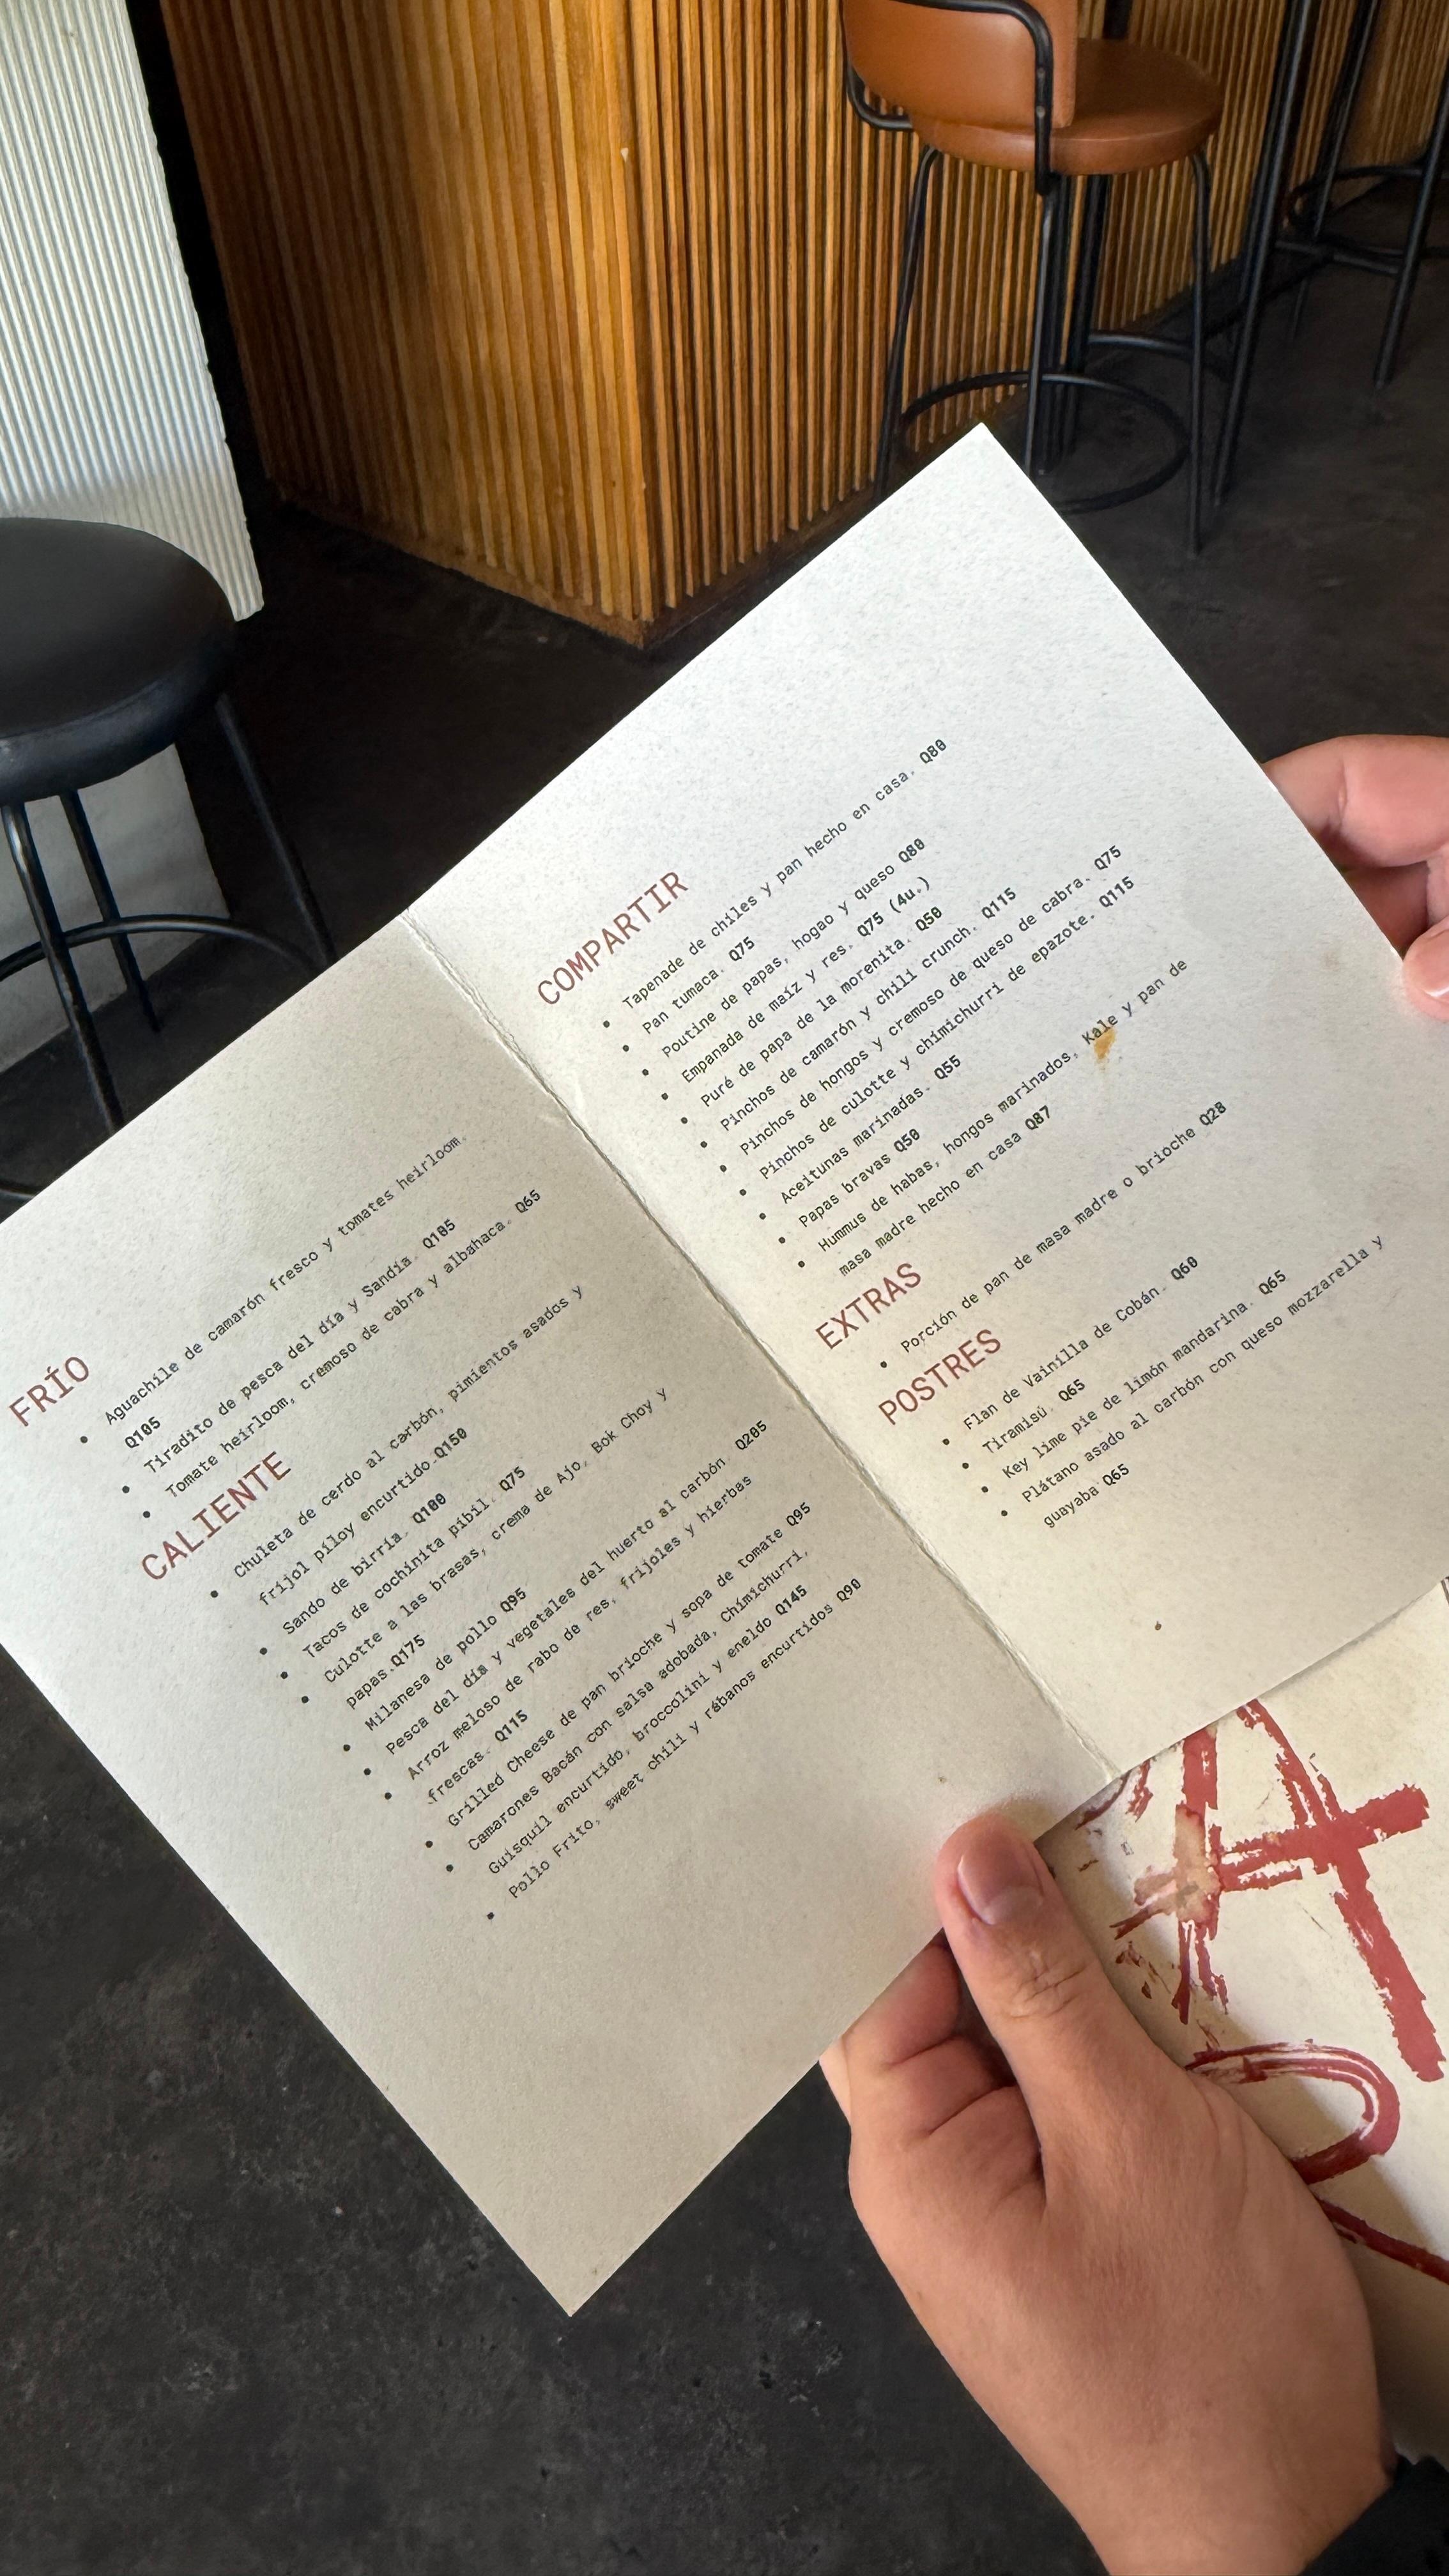 FRÍO
Aguachile de camarón fresco y tomates heirloom.
Q105
Tiradito de pesca del día y Sandía. Q105
Tomate heirloom, cremoso de cabra y albahaca. Q65
CALIENTE
Chuleta de cerdo al carbón, pimientos asados y
frijol piloy encurtido.Q150
Sando de birria. Q100
Tacos de cochinita pibil. Q75
Culotte a las brasas, crema de Ajo, Bok Choy y
papas.Q175
Milanesa de pollo Q95
Pesca del día y vegetales del huerto al carbón. Q205
Arroz meloso de rabo de res, frijoles y hierbas
frescas. Q115
Grilled Cheese de pan brioche y sopa de tomate Q95
Camarones Bacán con salsa adobada, Chimichurri,
Guisquil encurtido, broccolini y eneldo Q145
Pollo Frito, sweet chili y rábanos encurtidos Q90
COMPARTIR
Tapenade de chiles y pan hecho en casa. Q80
Pan tumaca. Q75
Poutine de papas, hogao y queso Q80
Empanada de maíz y res. Q75 (4u.)
Puré de papa de la morenita. Q50
Pinchos de camarón y chili crunch. Q115
Pinchos de hongos y cremoso de queso de cabra. Q75
Pinchos de culotte y chimichurri de epazote. Q115
Aceitunas marinadas. Q55
Papas bravas Q50
Hummus de habas, hongos marinados, Kale y pan de
masa madre hecho en casa Q87
EXTRAS
Porción de pan de masa madre o brioche Q28
POSTRES
Flan de Vainilla de Cobán. Q60
Tiramisú. Q65
Key lime pie de limón mandarina. Q65
Plátano asado al carbón con queso mozzarella y
guayaba Q65